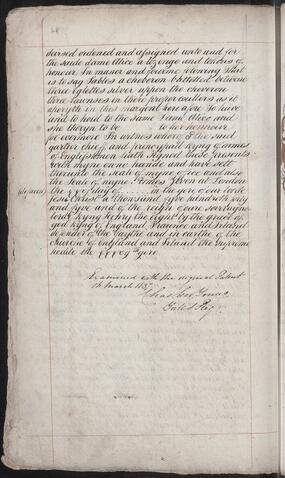 devised ordened and assigned unto and for
the saide dame Alice a lozenge and tokens of
honour. In maner and fourme folowing That
is to say Sables a cheveron betwene
three egletts silver uppon the cheveron
three in their proper coullors as it
aperyth in this margent here afore To have
and to hold to the same Dame Alice and
she theryn to be to her honnour
for evermore In witness whereof I the said
gartier chieff and principall kyng of armes
of Englishmen hath signed these presents
with myne owne hande and have sett
thereunto the seale of myne office and also
the seale of myne armes Geven at London
the day of in the yere of our lorde
Jesus Christ a thousand fyve hundreth
and fyve and of the reign of our soveraigne
lorde kyng Henry the eight by the grace of
god kyng of England France and Irland
defender of the faythe and in earthe of the
churche of England and Irland the supreme
hedde the yere
Examined with the original Patent
16 March 1837
Chas Geo Young
York &